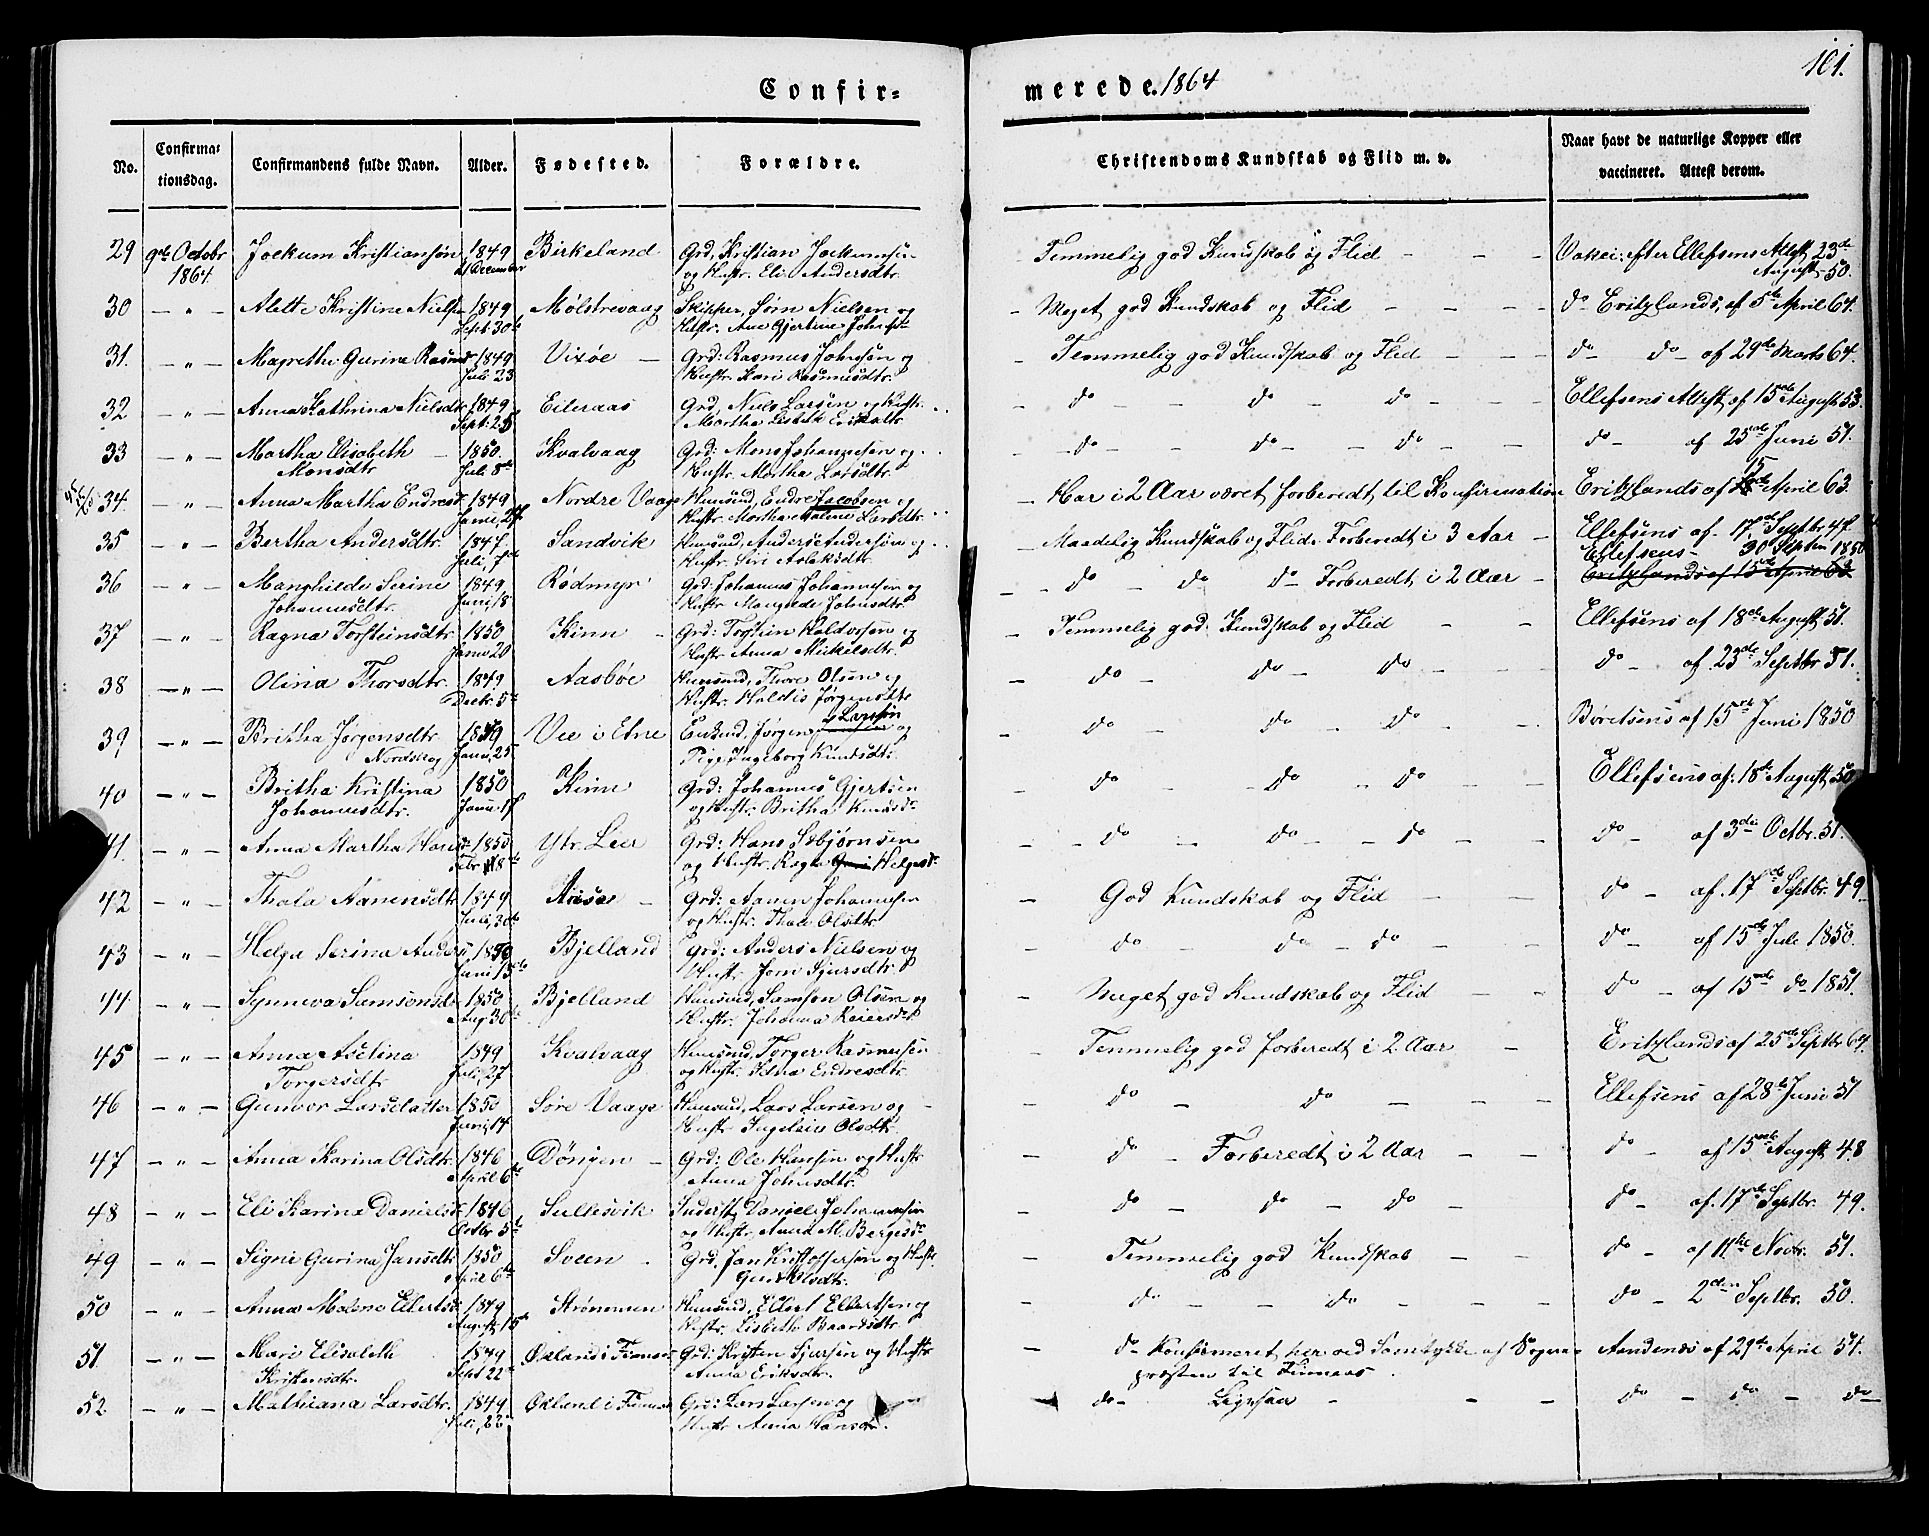 101.
Confir- merede. 1864
No. Confirma- tionsdag. Confirmandens fulde Navn. Alder. Fødested. Forældre. Christendoms Kundskab og Flid m. v. Naar havt de naturlige Kopper eller vaccineret. Attest derom.
29 9de Octobr Jockum Kristiansøn 1849 Birkeland Grd, Kristian Jockumsen Temmelig god Kundskab og Flid - - - Vakci: efter Ellefsens Attest 23de
1864. 21 December og Hustr. Eli Andersdtr. August 50.
30 - " - Alette Kristine Nielsen 1849 Mølstrevaag Skipper, Sørn Nielsen og - Meget god Kundskab og Flid - - - do Eritzlands, af 5te April 64.
Sept 30te Hustr. Ane Gjertine Johnsdtr
31. - " - Magrethe Gurine Rasmusd 1849 Vixøe - Grd: Rasmus Johnsen og - Temmelig god Kundskab og Flid - - - do - do - af 29de Marts 64.
Juli 23 Hustr. Kari Rasmusdtr.
32 - " - Anna Kathrina Nielsdtr 1849 Eileraas Grd, Niels Larsen og Hustr. - do - do - do - - Ellefsens Attest af 15de August 53.
Sept: 25 Martha Lisbeth Eriksdtr
33 - " - Martha Elisabeth - 1850. Kvalvaag Grd: Mons Johannesen og - do - do - do - - do - af 25de Juni 51.
Monsdtr Juli 8de Hustr. Martha Larsdtr.
34. - " - Anna Martha Endresd 1849 Nordre Vaage Huusmd, Endre Jacobsen og - Har i 2 Aar været forberedt til Konfirmation Eritzlands af 15de April 63.
Janu, 27 Hustr. Martha Malene Larsdtr.
35 - " - Bertha Andersdtr. 1847. Sandvik Huusmd, Anders Andersøn og - Maadelig Kundskab og Flid. Forberedt i 3 Aar - Ellefsens af. 17de Septbr. 47.
Juli, 7de Hustr. Siri Aslaksdtr. Ellefsens - 30 Septem 1850
36 - " - Manghilde Serine 1849 Rødmyr Grd: Johannes Johannesen og - - do do do - Forberedt i 2 Aar - Eritzlands af 15de April 63
Johannesdtr. Juni, 18 Hustr. Mangrede Johnsdtr.
37 - " - Ragna Torsteinsdtr 1850 Kinn - Grd: Torstein Haldorsen og - Temmelig god Kundskab og Flid - - Ellefsens af 18de August, 51.
Janu 20 Hustr. Anna Mickelsdtr.
38 - " - Olina Thorsdtr. 1849 Aasbøe Huusmd, Thore Olsen og - do - do - do - - do - af. 23de Septbr 51.
Decbr. 5te Hustr. Haldis Jørgensdtr
39 - " - Britha Jørgensdtr. 1849 Vee i Etne Enkemd, Jørgen Larsen og - do - do - do - - Børetsens af 15de Juni 1850
Nordskog Janu, 25 Pige Ingeborg Knudsdtr.
40 - " - Britha Kristina 1850 Kinn Grd: Johannes Gjertsen - do - do - do - - Ellefsens af: 18de August, 50
Johannesdtr. Janu. 17 og Hustr. Britha Knudsdr
41. - " - Anna Martha Hansd 1850 Ytr. Leer Grd: Hans Esbjørnsen - - do - do - do - do - af 3die Octbr. 51.
Febr 18de og Hustr. Ragte Helgesdr
42 - " - Thala Aanensdtr 1849 - Grd: Aanen Johannesen - God Kundskab og Flid - - do - af. 17de Septbr. 49
Juli, 30te og Hustr. Thale Olsdtr.
43 - " - Helga Serina Anders 1850 Bjelland Grd: Anders Nielsen og - do - do - do - - do - af 15de Juli 1850.
Juni 15de Hustr. Jorn Sjursdtr.
44 - " - Synneva Samsonsdr 1850 Bjelland Huusmd, Samson Olsen og - Meget god Kundskab og Flid - - do - af 15de do 1851.
Aug 30te Hustr. Johanna Reiersdtr
45 - " - Anna Aselina 1849 Kvalvaag Huusmd, Torger Rasmusen - Temmelig god forberedt i 2 Aar - Eritzlands af 25de Septbr 64.
Torgersdtr Juli, 27 og Hustr. Edna Endresdtr.
46 - " - Gunvor Larsdatter 1850 Søre Vaage Huusmd, Lars Larsen og - do - do - - - Ellefsens af 28de Juni 51
Juni, 14 Hustr. Ingelsie Olsdtr.
47 - " - Anna Karina Olsdtr 1846 Døvigen - Grd: Ole Hansen og Hustr - do - Forberedt i 2 Aar - - do - af 15de August 48
April 6te Anna Johnsdtr.
48 - " - Eli Karina Danielsd 1846 Sullesvik Inderst, Daniel Johannesen - do - do - do - - do - af. 17de Septbr. 49.
Octbr 5te og Hustr. Anna M. Bergesdr
49 - " - Signe Gurina Jansdtr 1850 Sveen - Grd, Jan Kristoffersen og Hustr. - Temmelig god Kundskab - - do - af 11te Novbr. 51.
April 6te Guri Olsdtr.
50 - " - Anna Malene Eilertsd 1849 Strømmen Huusmd, Eilert Ellertsen og - do - - do - - - do - 2den Septbr. 50.
August 15de Hustr. Lisbeth Baardsdtr
51. - " - Mari Elisabeth 1849 Økland i Finnaas Grd: Kristen Sjursen og Hustr - do Konfirmeret her ved Samtykke af Sogne- Aandenæs af 29de April 51.
Kristensdtr. Sept 22de Anna Eriksdtr. præsten til Finnaas.
52. - " - Mathiana Larsdtr. 1849 Økland i Finnaas Grd: Lars Larsen og - do - Ligesaa - - - do - do - do -
Juli, 22 Hustr Anna Hansdr.